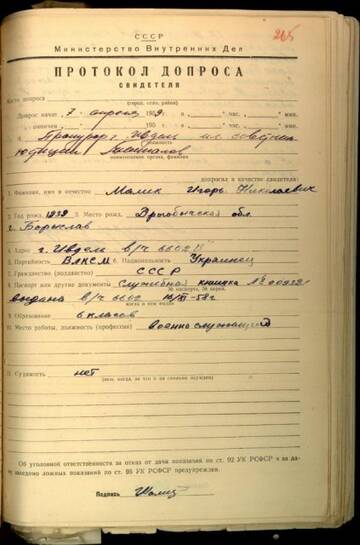 265
СССР
Министерство Внутренних Дел
ПРОТОКОЛ ДОПРОСА
СВИДЕТЕЛЯ
Место допроса
(город, село, район)
Допрос начат 7 апреля 1959 г. в час. мин.
" окончен 195 г. в час. мин.
Прокурор г. Ивдель мл. советник
должность
юстиции
наименование органа, фамилия
допросил в качестве свидетеля:
1. Фамилия, имя и отчество Малик Игорь Николаевич
2. Год рожд. 1938 3. Место рожд. Дрогобычская обл.
г. Борислав
4. Адрес г. Ивдель в/ч 6602
5. Партийность ВЛКСМ 6. Национальность Украинец
7. Гражданство (подданство) СССР
8. Паспорт или другие документы служебная книжка №
выдана в/ч 6602 58 г.
9. Образование 6 классов
10. Место работы, должность (профессия) военнослужащий
11. Судимость нет
(кем, когда, за что и на сколько осужден)
Об уголовной ответственности за отказ от дачи показания по ст. 92 УК РСФСР и за да-
чу заведомо ложных показаний по ст. 95 УК РСФСР предупрежден.
Подпись